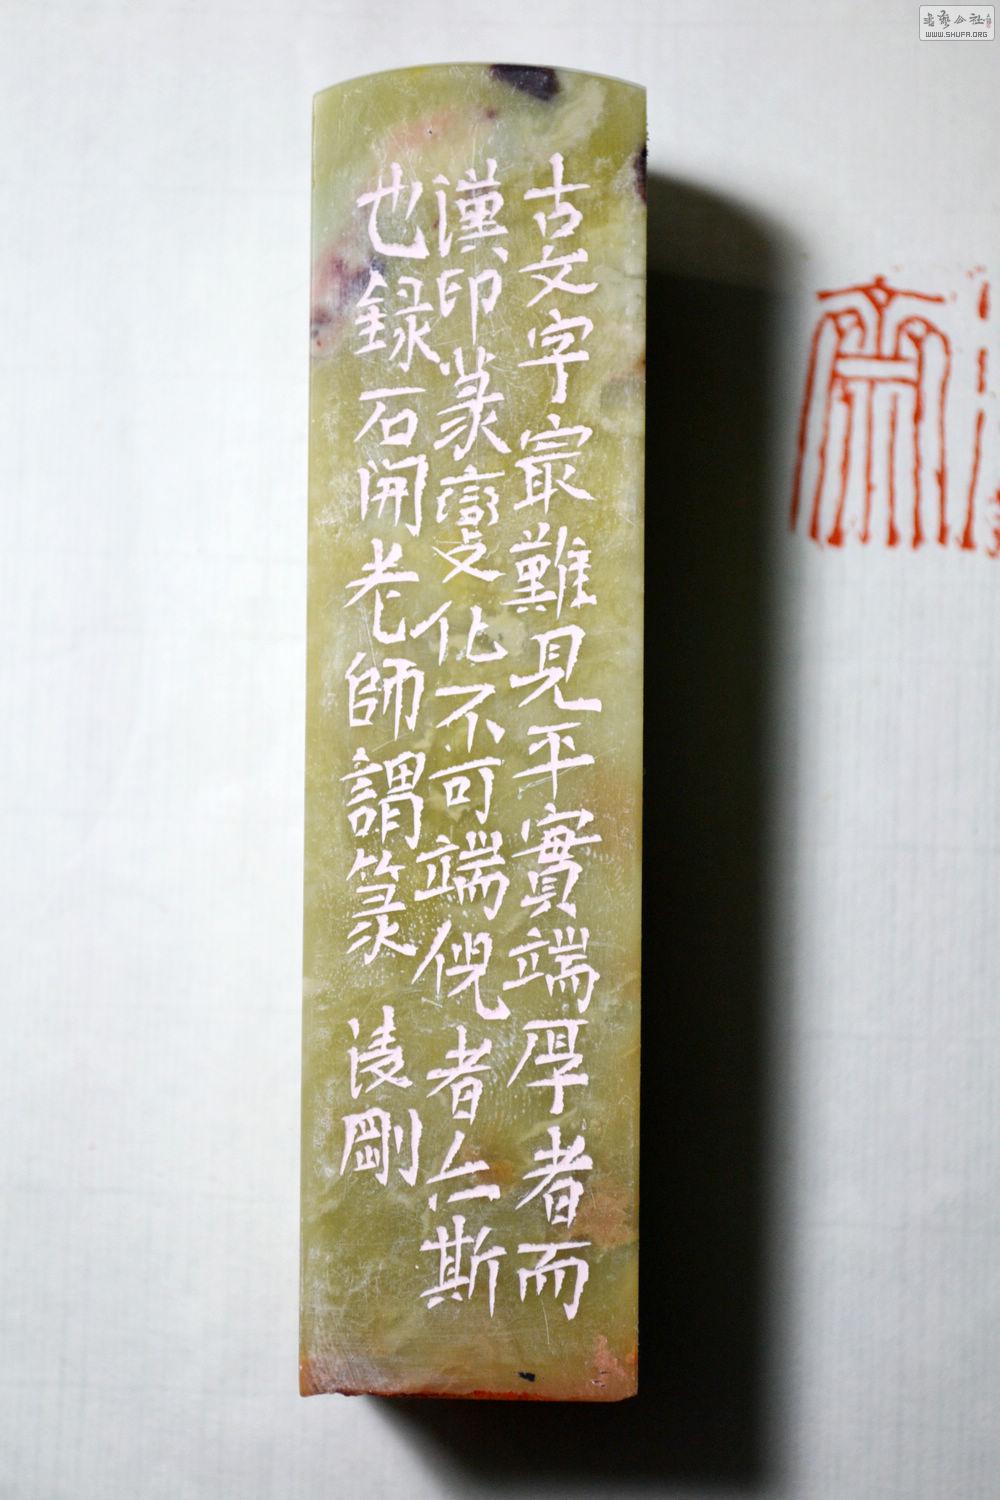 古文字寂難見平實端厚者而
漢印篆變化不可端倪者亼斯
也錄石開老師謂篆 淩剛
WWW.SHUFA.ORG